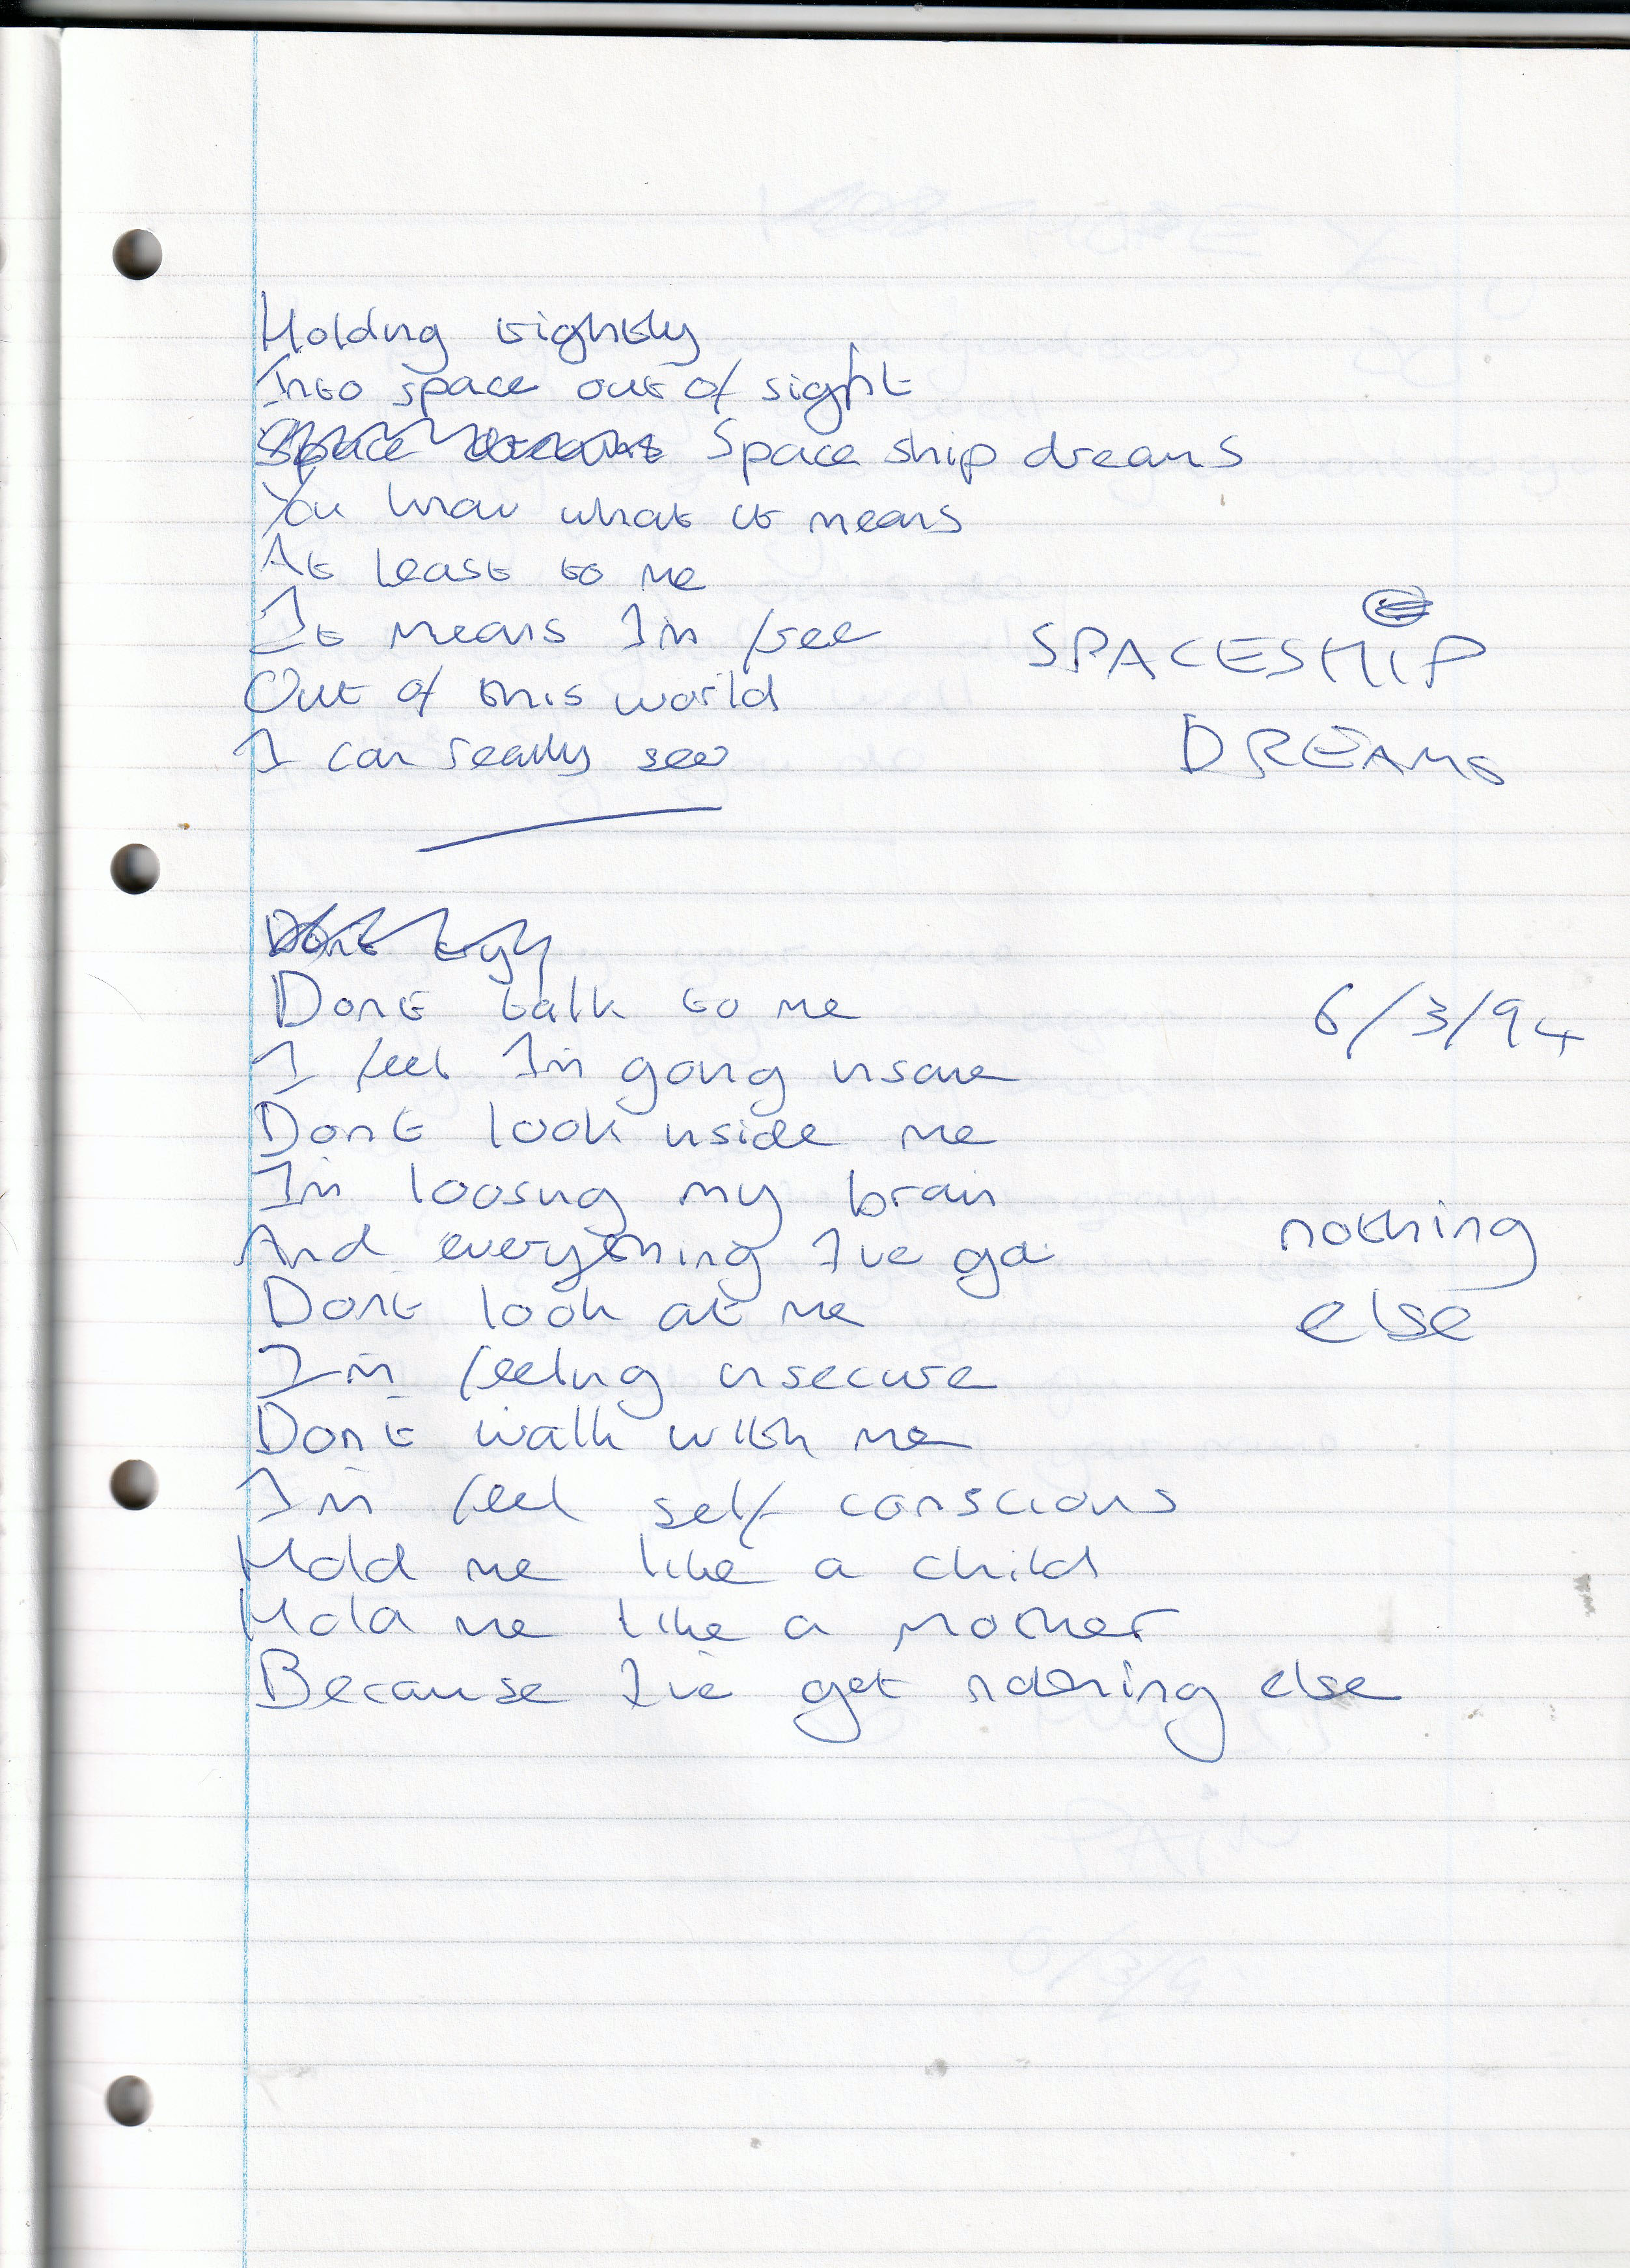 Holding tightly
Into space out of sight
Space dreams Space ship dreams
You know what it means
At least to me
It means Im free
Out of this world
I can really see
SPACESHIP
DREAMS
Dont try
Dont talk to me
6/3/94
I feel Im going insane
Dont look inside me
Im loosing my brain
And everything Ive got
nothing
else
Dont look at me
Im feeling insecure
Dont walk with me
Im feel self conscious
Hold me like a child
Hold me like a mother
Because Ive got nothing else